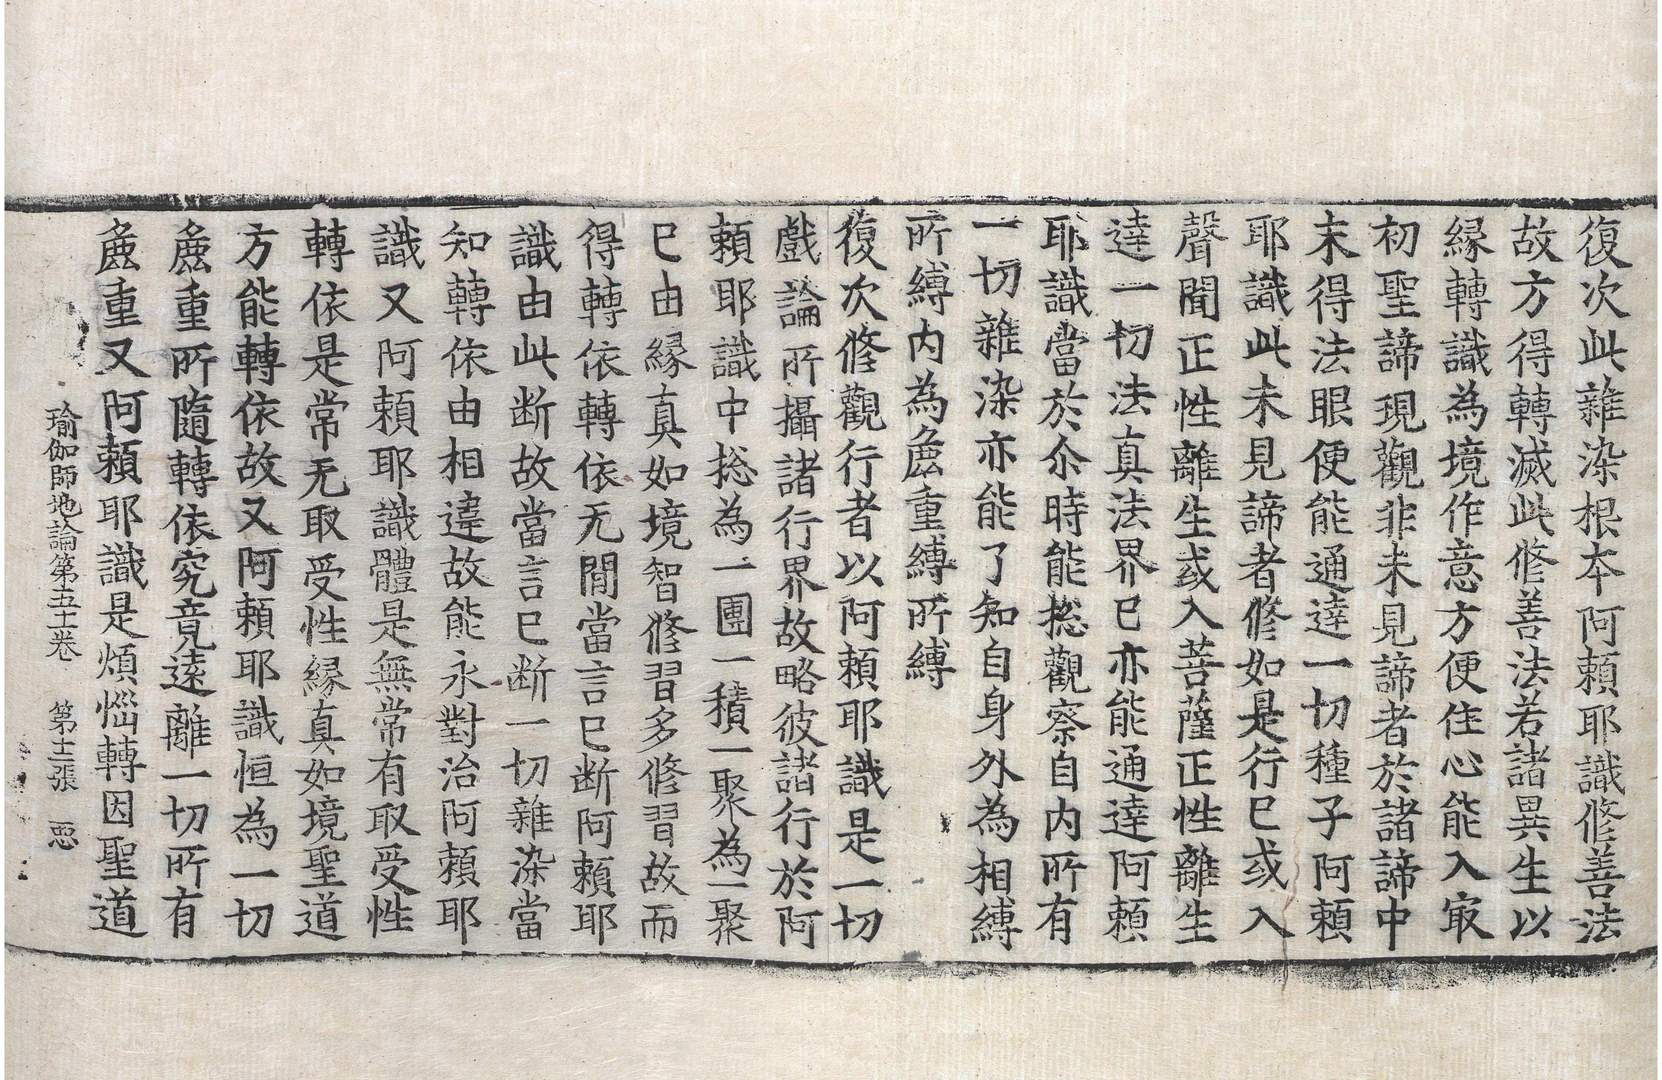 復次此雜染根本阿賴耶識修善法
故方得轉滅此修善法若諸異生以
緣轉識為境作意方便住心能入㝡
初聖諦現觀非未見諦者於諸諦中
未得法眼便能通達一切種子阿賴
耶識此未見諦者修如是行已或入
聲聞正性離生或入菩薩正性離生
達一切法真法界已亦能通達阿賴
耶識當於尒時能揔觀察自內所有
一切雜染亦能了知自身外為相縛
所縛內為麁重縛所縛
復次修觀行者以阿賴耶識是一切
戲論所攝諸行界故略彼諸行於阿
賴耶識中揔為一團一積一聚為一聚
已由緣真如境智修習多修習故而
得轉依轉依无間當言已断阿賴耶
識由此断故當言已断一切雜染當
知轉依由相違故能永對治阿賴耶
識又阿賴耶識體是無常有取受性
轉依是常无取受性緣真如境聖道
方能轉依故又阿賴耶識恒為一切
麁重所隨轉依究竟遠離一切所有
麁重又阿賴耶識是煩惱轉因聖道
瑜伽師地論第五十一卷 第十二張 惡